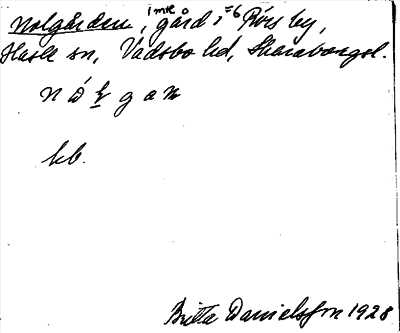 Nolgården, 1 mtl gård i =6 Rörs by,
Hassle sn, Vadsbo hd, Skaraborgsl.
n å l g a n
kb.
Britta Danielsson 1928